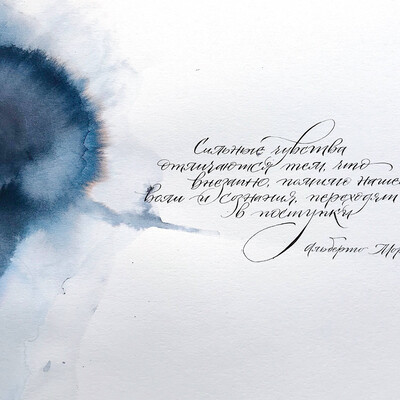 Сильные чувства
отличаются тем, что
внезапно, помимо нашей
воли и сознания, переходят
в поступки
Альберто Мор